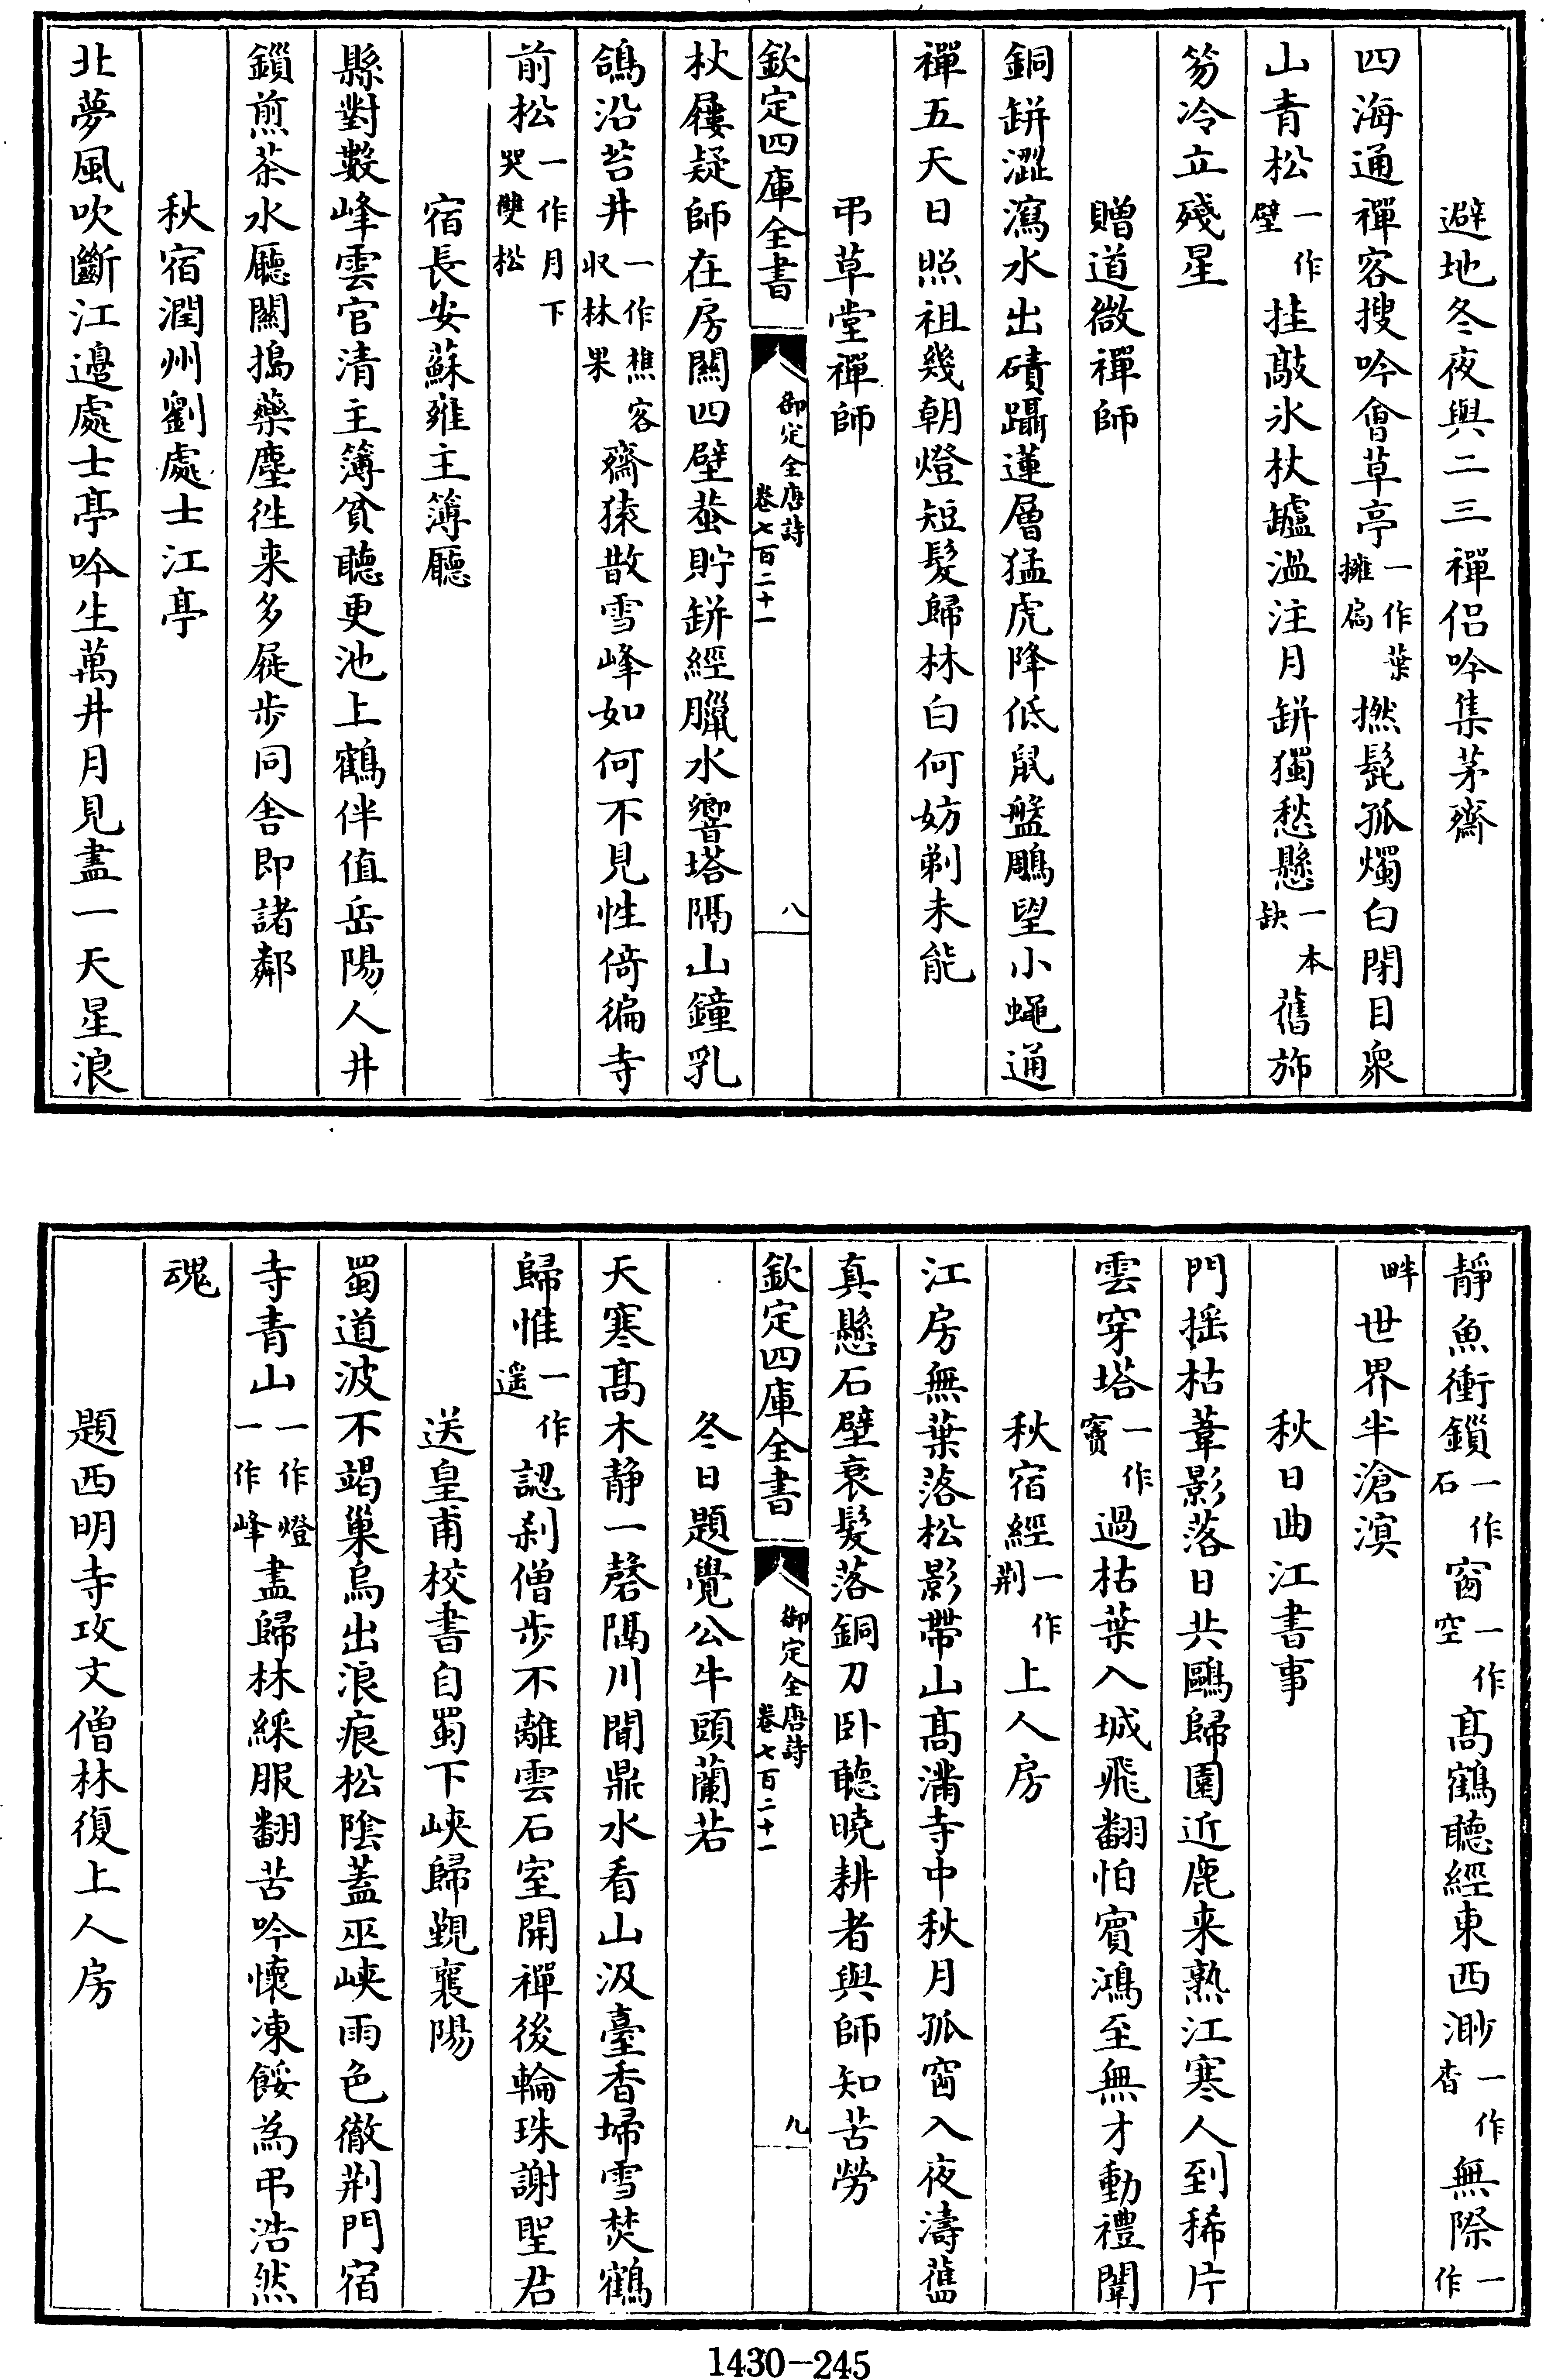 避地冬夜與二三禪侣吟集茅齋
四海通禪客搜吟會草亭一作葉擁扄撚髭孤燭白閉目衆
山青松一作壁挂敲氷杖罏温注月缾獨愁懸一本缺舊旆
笏冷立殘星
贈道微禪師
銅缾澀瀉水出磧躡蓮層猛虎降低鼠盤鵰望小蠅通
禪五天日照祖幾朝燈短髪歸林白何妨剃未能
弔草堂禪師
欽定四庫全書 御定全唐詩卷七百二十一 八
杖屨疑師在房關四壁蛬貯缾經臘水響塔隔山鐘乳
鴿沿苔井一作樵客収林果齋猿散雪峰如何不見性倚徧寺
前松一作月下哭雙松
宿長安蘇雍主簿廳
縣對數峰雲官清主簿貧聽更池上鶴伴值岳陽人井
鎖煎茶水廳關搗藥塵徃来多屣步同舎即諸鄰
秋宿潤州劉處士江亭
北夢風吹斷江邉處士亭吟生萬井月見盡一天星浪
靜魚衝鎖一作石窗一作空髙鶴聽經東西渺一作杳無際一作
畔世界半滄溟
秋日曲江書事
門揺枯葦影落日共鷗歸園近鹿来熟江寒人到稀片
雲穿塔一作竇過枯葉入城飛翻怕賓鴻至無才動禮闈
秋宿經一作荆上人房
江房無葉落松影帶山髙滿寺中秋月孤窗入夜濤舊
真懸石壁衰髪落銅刀卧聽曉耕者與師知苦勞
欽定四庫全書 御定全唐詩卷七百二十一 九
冬日題覺公牛頭蘭若
天寒髙木静一磬隔川聞鼎水看山汲臺香埽雪焚鶴
歸惟一作遥認刹僧步不離雲石室開禪後輪珠謝聖君
送皇甫校書自蜀下峽歸覲襄陽
蜀道波不竭巢烏出浪痕松隂蓋巫峽雨色徹荆門宿
寺青山一作燈一作峰盡歸林綵服翻苦吟懐凍餒為弔浩然
魂
題西明寺攻文僧林復上人房
1430-245